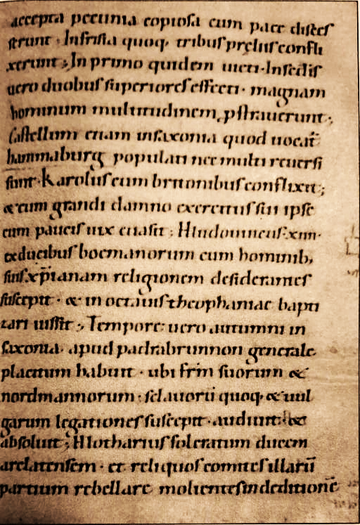 accepta pecunia copiosa cum pace disces
serunt · In frisia quoq· tribus pręliis confli
xerunt ; In primo quidem uicti · In sedis
uero duobus superiores effecti · magnam
hominum multitudinem pstrauerunt ;
Castellum etiam in saxonia quod uocat̄
hammaburg populati nec multi reuersi
sunt · Karolus cum brittonibus conflixit ;
& cum grandi damno exercitus sui ipse
cum paucis uix euasit ; Hludouuicus · xiiii ·
ex ducibus boemanorum cum hominib;
suis xp̄ianam religionem desiderantes
suscepit · & in octauis theophaniae bapti
zari iussit ; Tempore uero autumni in
saxonia · apud padrabrunnon generale
placitum habuit · ubi fr̄m suorum &
nordmannorum · sclauorū quoq· & uul
garum legationes suscepit · audiuit · &
absoluit ; Hlotharius folcratum ducem
arelatensem · et reliquos comites illarū
partium rebellare molientes in deditionē